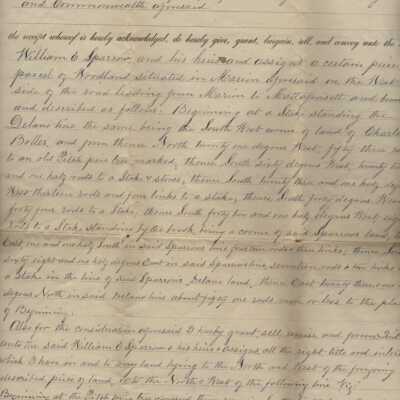 and Commonwealth aforesaid
the receipt whereof is hereby acknowledged, do hereby give, grant, bargain, sell, and convey unto the
William C Sparrow, and his heirs and assigns a certain piece
parcel of Woodland situated in Marion aforesaid on the West
side of the road leading from Marion to Mattapoisett and
and described as follows. Beginning at a Stake standing the
Delano line the same being the South West corner of land of Charles
and from thence North twenty one degrees West, fifty three
to an old Pitch pine tree marked, thence South sixty degrees West, twenty
and one half rods to a Stake & stones, thence South twenty three and one half
West thirteen rods and four links to a stake, thence South forty degrees West
forty four rods to a Stake, thence South forty two and one half degrees West eight
rods to a Stake standing by the brook, being a corner of said Sparrows land,
East, one and one half South in said Sparrows line fourteen rods & three links, thence South
sixty eight and one half degrees East in said Sparrows line, seventeen rods & two links
a Stake in the line of said Sparrows Delano land, thence East twenty three
degrees North in said Delano line about fifty one rods more or less to the place
of Beginning.
Also for the consideration aforesaid I hereby grant, sell, remise and
unto the said William C Sparrow & his heirs & assigns, all the right, title and
which I have in and to any land lying to the North and West of the foregoing
described piece of land, & to the North & West of the following line Viz
Beginning at the Pitch pine tree